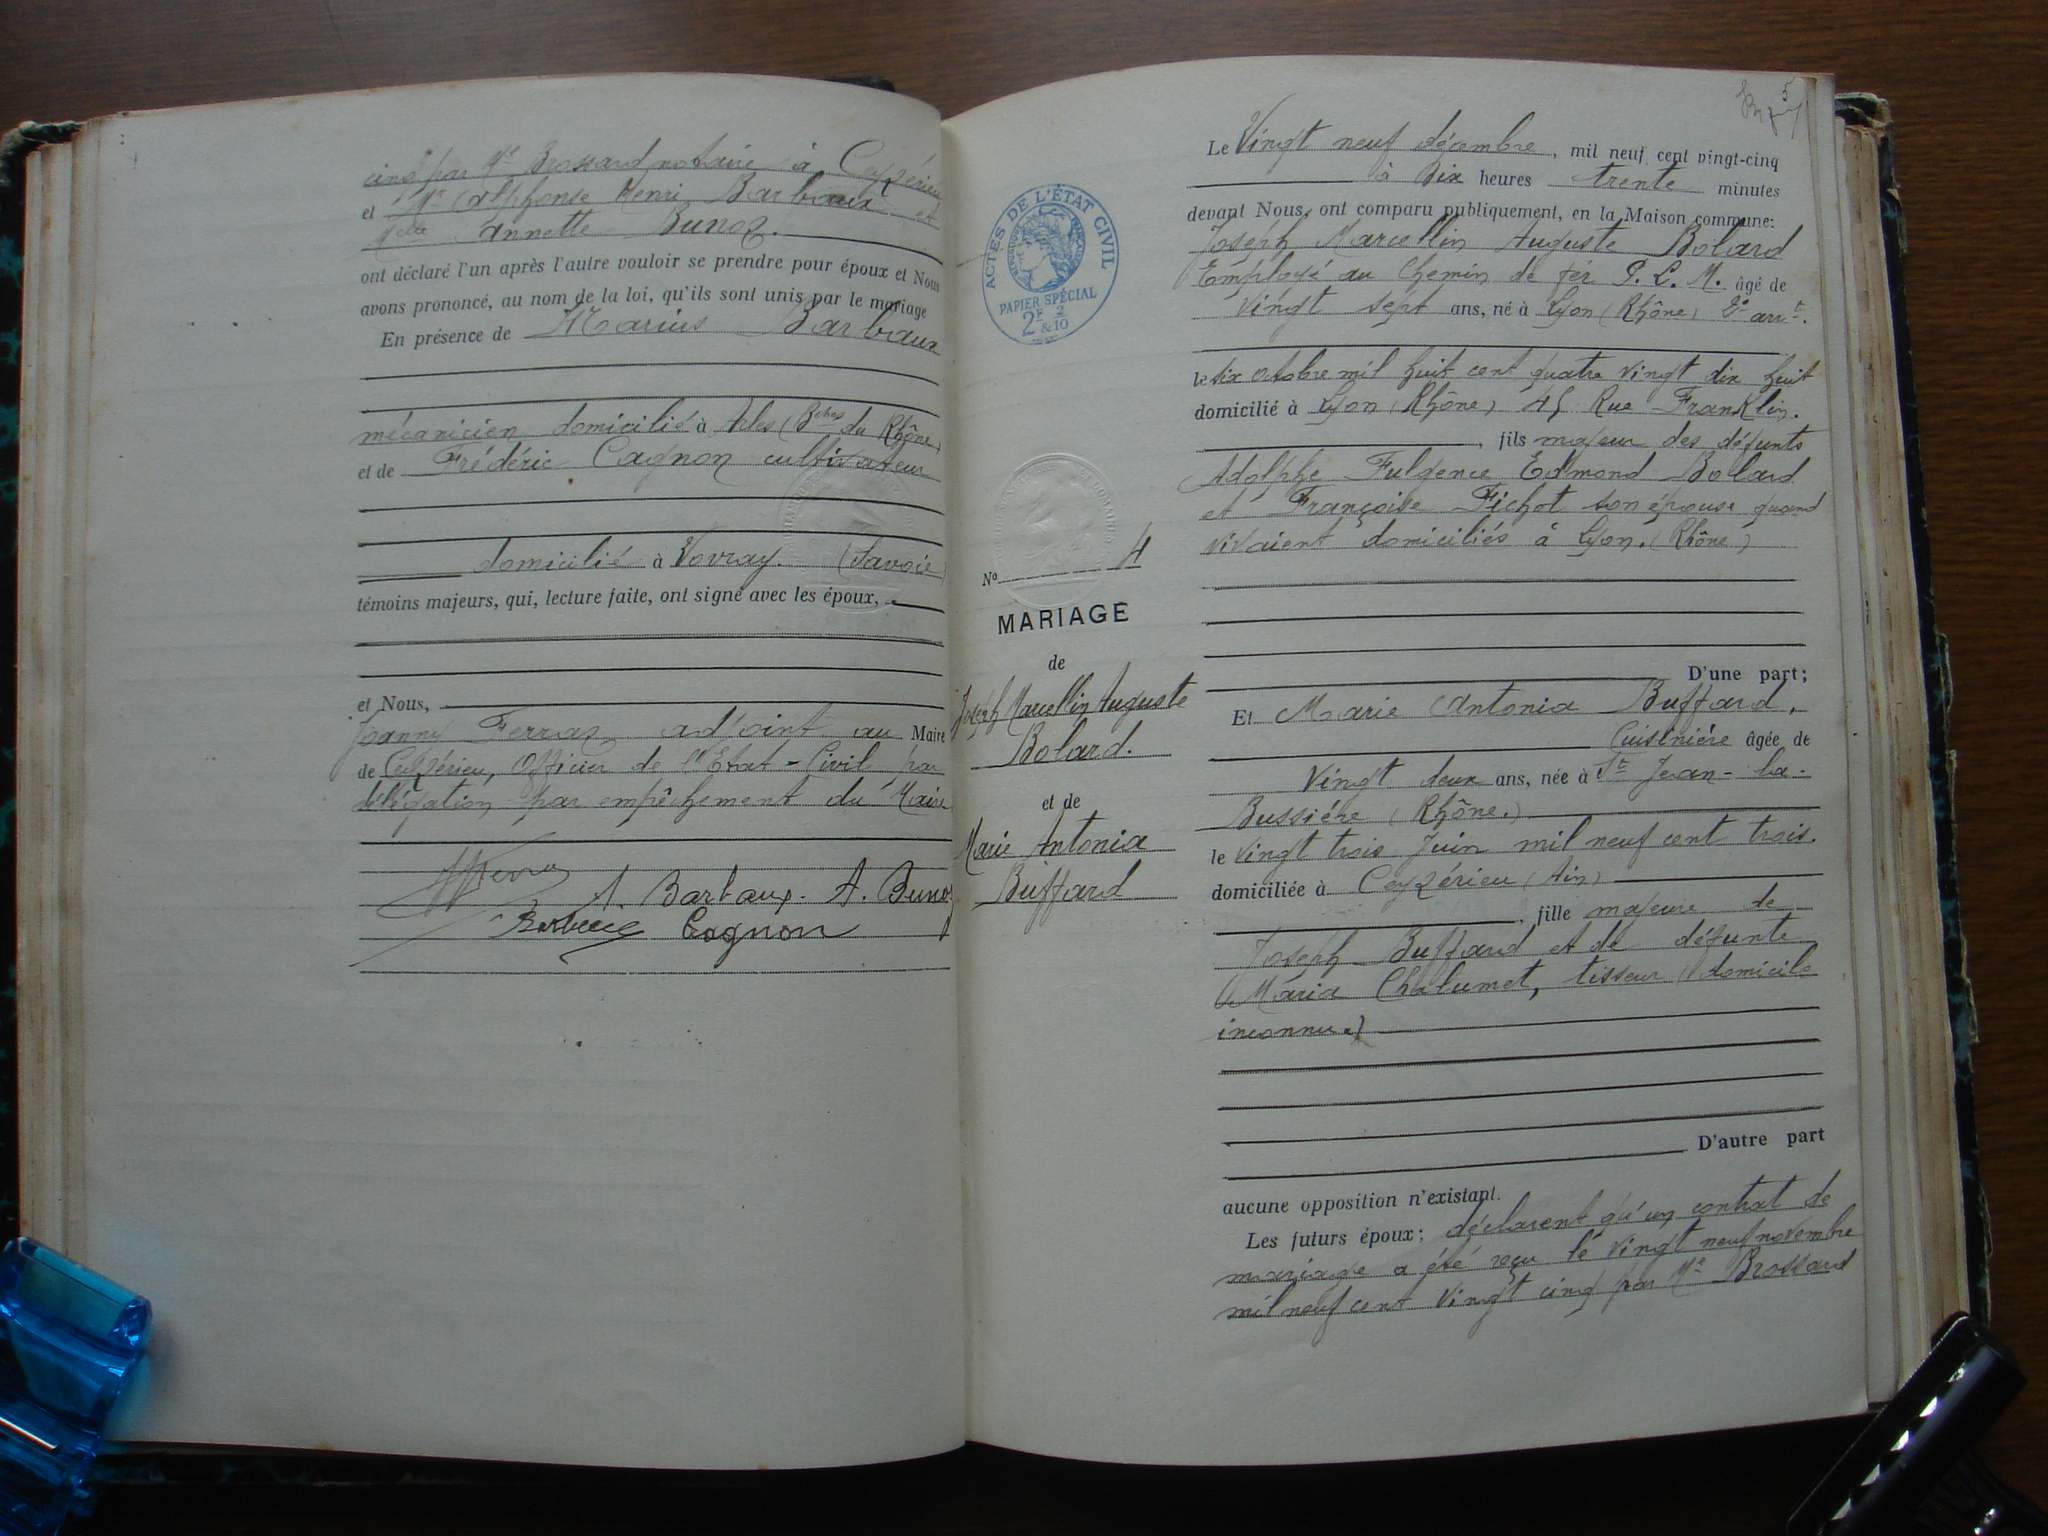 cinq par Me Brossard notaire à Ceyzérieu
et Mr Alphonse Henri Barbaux et
Melle Annette Bunoz.
ont déclaré l'un après l'autre vouloir se prendre pour époux et Nous
avons prononcé, au nom de la loi, qu'ils sont unis par le mariage
En présence de Marius Barbaux
mécanicien domicilié à Arles (Bches du Rhône)
et de Frédéric Cagnon cultivateur
domicilié à Vovray. (Savoie)
témoins majeurs, qui, lecture faite, ont signé avec les époux,
et Nous,
Joanny Ferraz adjoint au Maire
de Ceyzérieu, Officier de l'Etat-Civil par
délégation par empêchement du Maire
A. Barbaux. A. Bunoz
Barbaux Cagnon
ACTES DE L'ÉTAT CIVIL
PAPIER SPÉCIAL
2F & 2/10
No 4
MARIAGE
de
Joseph Marcellin Auguste
Bolard.
et de
Marie Antonia
Buffard
5
Le Vingt neuf décembre, mil neuf cent vingt-cinq
à Dix heures trente minutes
devant Nous, ont comparu publiquement, en la Maison commune:
Joseph Marcellin Auguste Bolard
Employé au Chemin de fer P. L. M. âgé de
Vingt sept ans, né à Lyon (Rhône) 2e arrt.
le six octobre mil huit cent quatre vingt dix huit
domicilié à Lyon (Rhône) 45 Rue Franklin.
, fils majeur des défunts
Adolphe Fulgence Edmond Bolard
et Françoise Fichot son épouse quand
vivaient domiciliés à Lyon. (Rhône)
D'une part;
Et Marie Antonia Buffard,
Cuisinière âgée de
Vingt deux ans, née à St Jean-la-
Bussière (Rhône.)
le vingt trois Juin mil neuf cent trois.
domiciliée à Ceyzérieu (Ain)
, fille majeure de
Joseph Buffard et de défunte
Maria Chalumet, tisseur (domicile
inconnu.)
D'autre part
aucune opposition n'existant.
Les futurs époux; déclarent qu'un contrat de
mariage a été reçu le vingt neuf novembre
mil neuf cent vingt cinq par Me Brossard